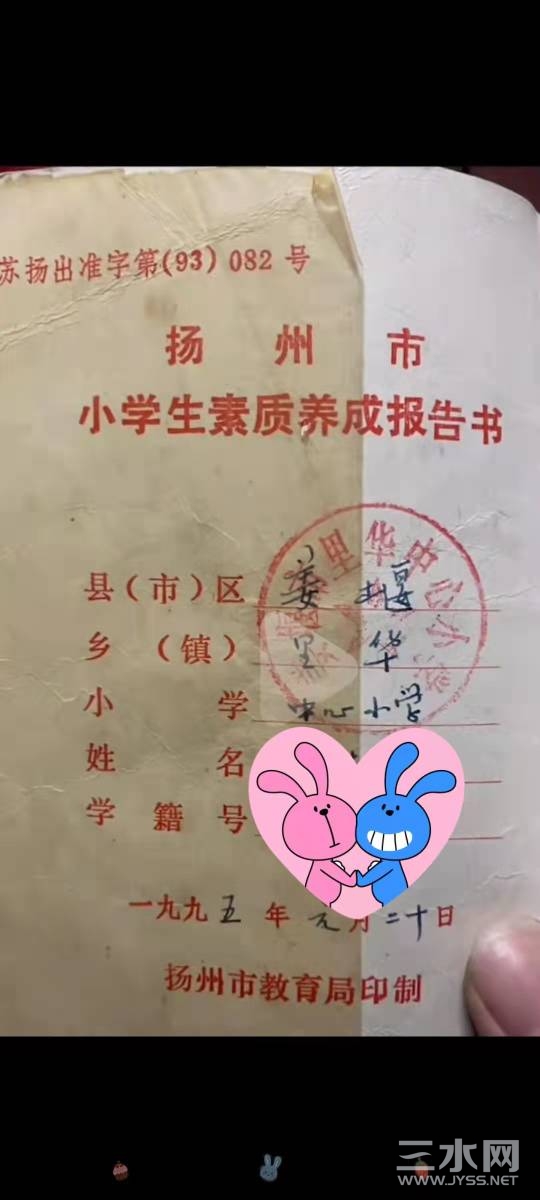 苏扬出准字第(93) 082 号
扬州市
小学生素质养成报告书
里华中心小学
县(市)区 姜堰
乡(镇) 里华
小学 中心小学
姓名
学籍号
一九九五年元月二十日
扬州市教育局印制
三水网
WWW.JYSS.NET